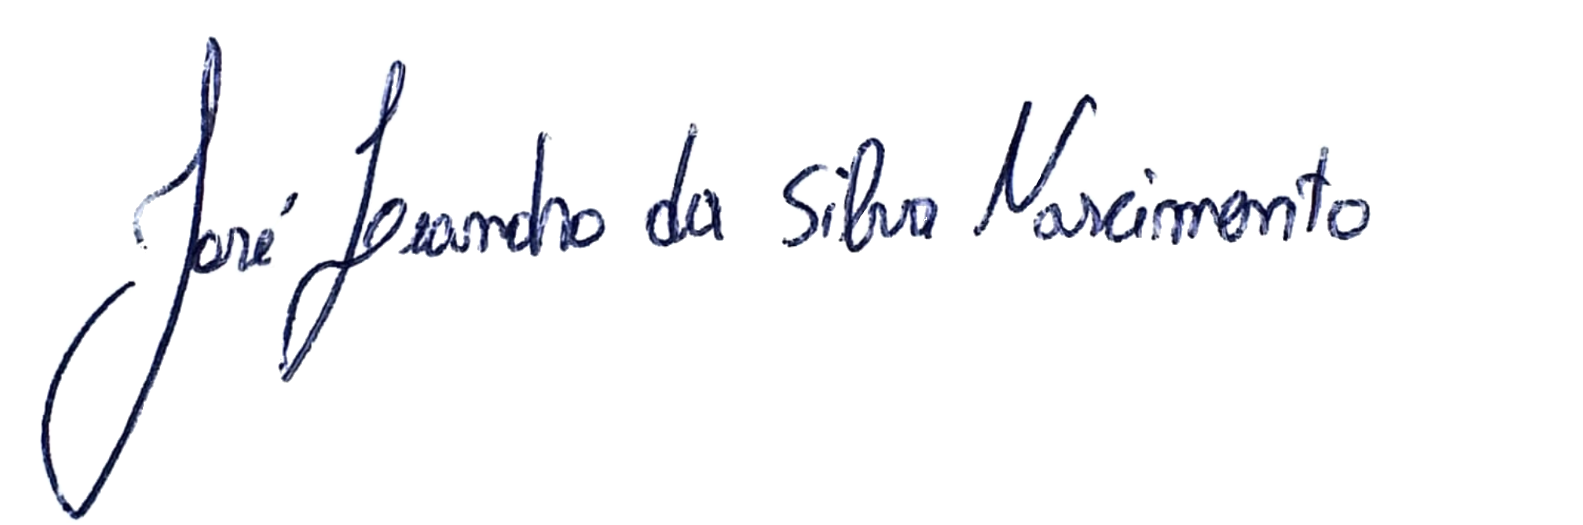 José Leandro da Silva Nascimento